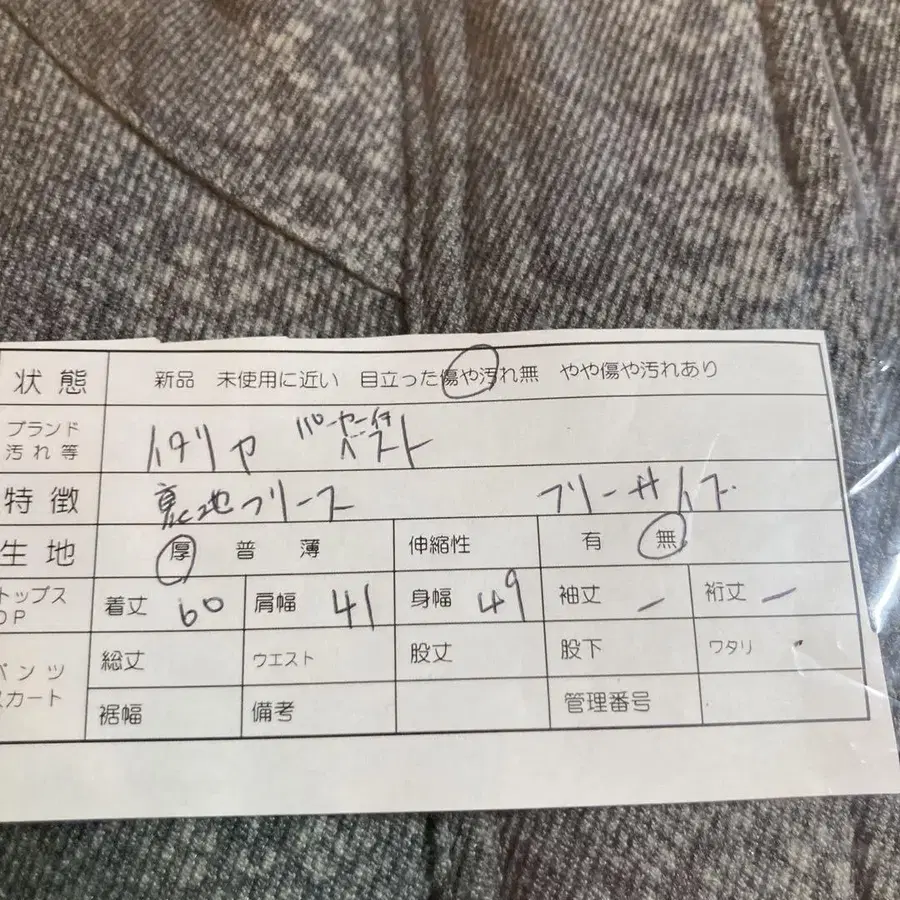 状態 新品 未使用に近い 目立った傷や汚れ無 やや傷や汚れあり
ブランド
汚れ等 イタリヤ ベスト
特徴 裏地フリース フリーサイズ
生地 厚 普 薄 伸縮性 有 無
トップス
OP 着丈 60 肩幅 41 身幅 49 袖丈 ー 裄丈 ー
パンツ
スカート 総丈 ウエスト 股丈 股下 ワタリ
裾幅 備考 管理番号